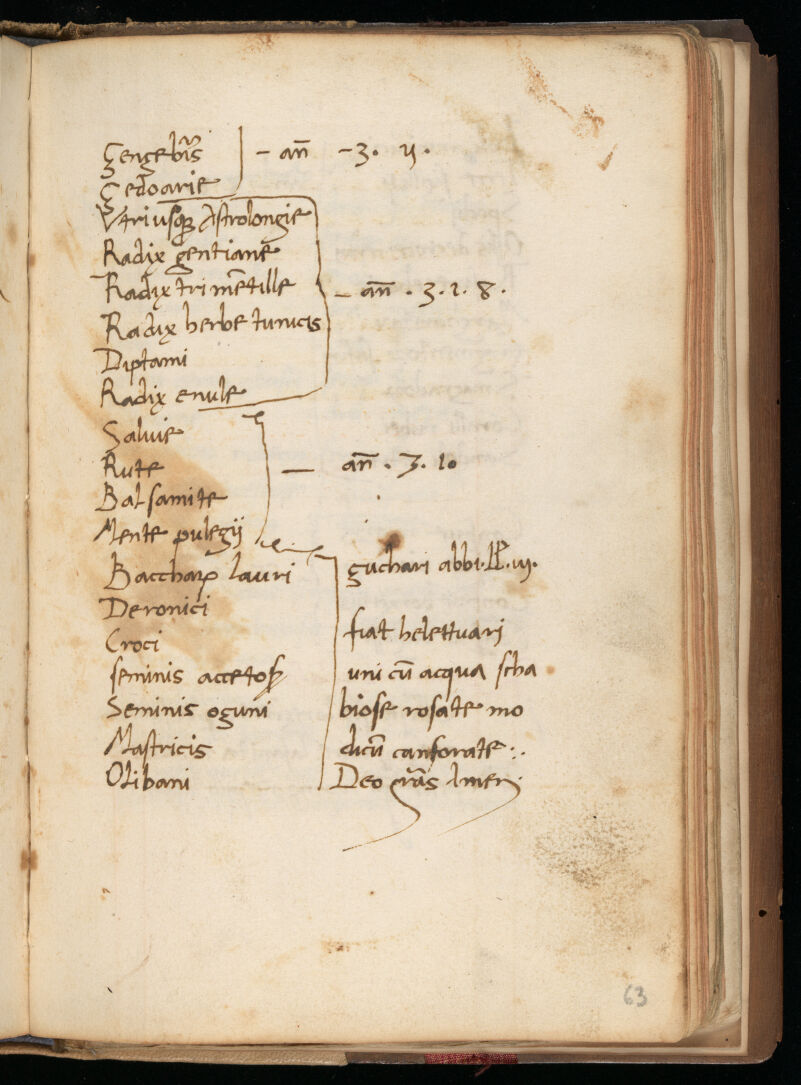 Gengebris - añ - 3. ij.
Gedoarie
Vtriusque Astrolongie
Radix gentiane
Radix trimētille - añ . 3. 1. 8.
Radix herbe tunicis
Diptami
Radix enule
Salvie
Rute - añ . 3. 10
Balsamite
Mente pulegij
Baccharum lauri
Deronici
Croci
seminis accetose
Seminis oguni
Mastricis
Olibani
guchari abbi. iij.
fiat helettuarj
uni cū acqua scha
biose rosate mo
dicū canforate :.
Deo gr̄as Amen.
63